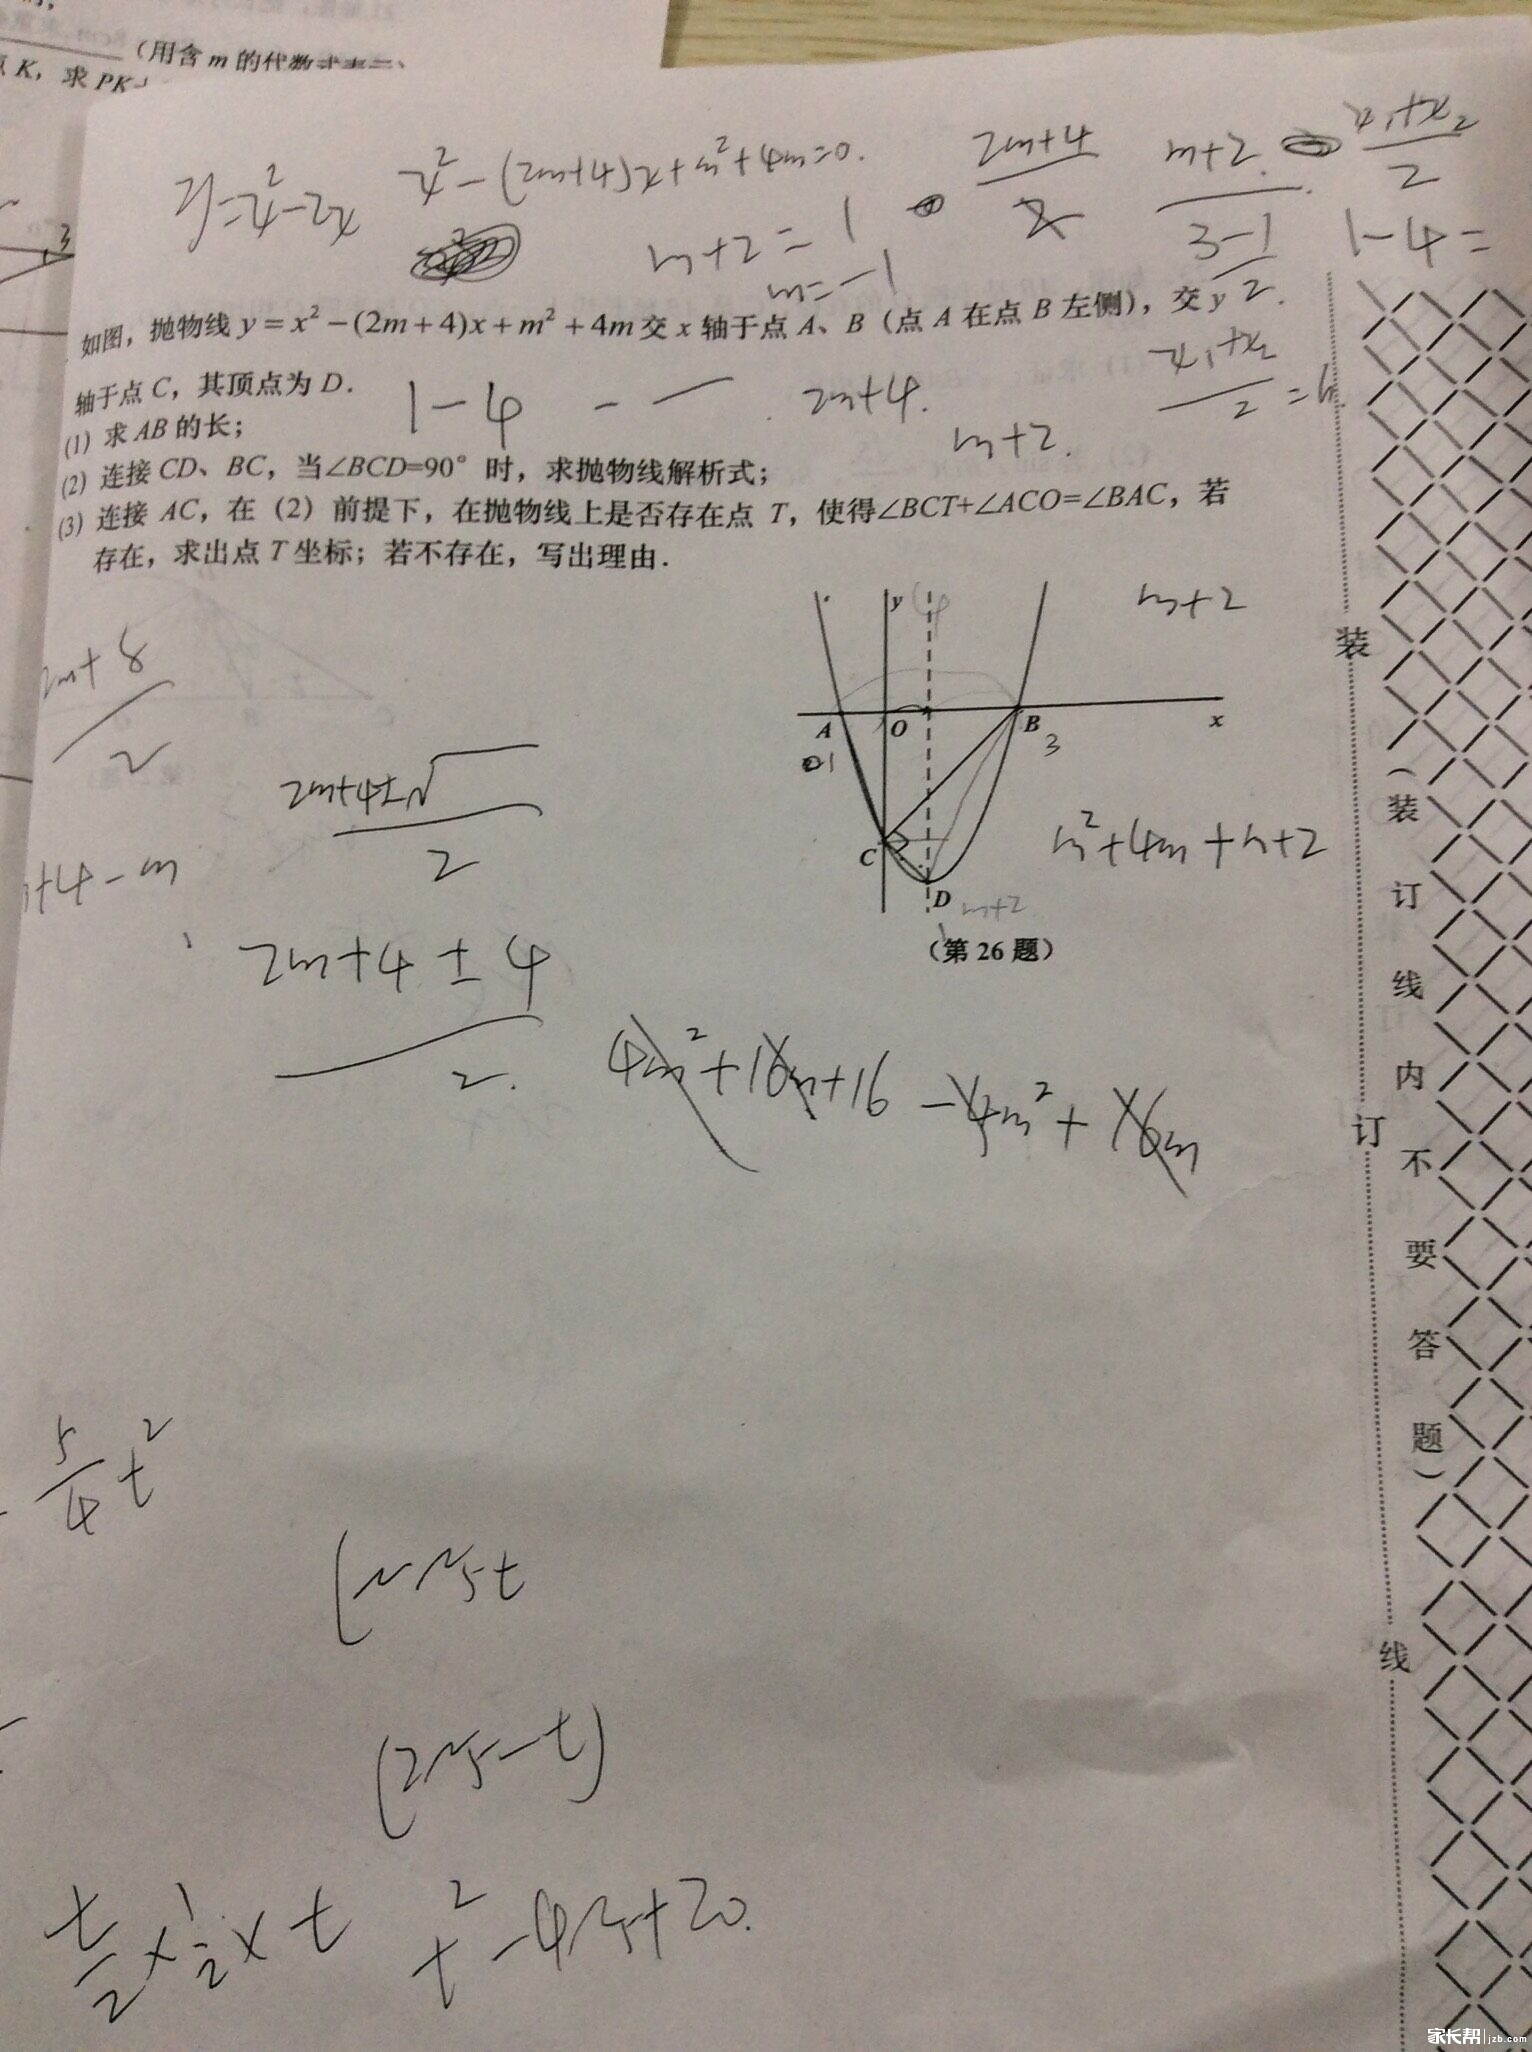 （用含 m 的代数式表示）
K，求 PK
y=x²-2x
x²-(2m+4)x+m²+4m=0.
2m+4
m+2
x₁+x₂
2
m+2=1
3-1
2
1-4=
m=-1
如图，抛物线 y=x²-(2m+4)x+m²+4m 交 x 轴于点 A、B（点 A 在点 B 左侧），交 y
轴于点 C，其顶点为 D.
1-4
2m+4.
x₁+x₂
2
(1) 求 AB 的长；
m+2.
(2) 连接 CD、BC，当∠BCD=90° 时，求抛物线解析式；
(3) 连接 AC，在（2）前提下，在抛物线上是否存在点 T，使得∠BCT+∠ACO=∠BAC，若
存在，求出点 T 坐标；若不存在，写出理由.
y
m+2
A
O
B
x
3
C
D
m+2
m²+4m+m+2
（第 26 题）
2m+8
2
2m+4±√
2
+4-m
2m+4±4
2.
4m²+16m+16-4m²+16m
5
4
t²
(2√5-t)
t
2
×
1
2
×t
t²-4√5t+20.
装
订
线
（装订线内不要答题）
家长帮 jzb.com